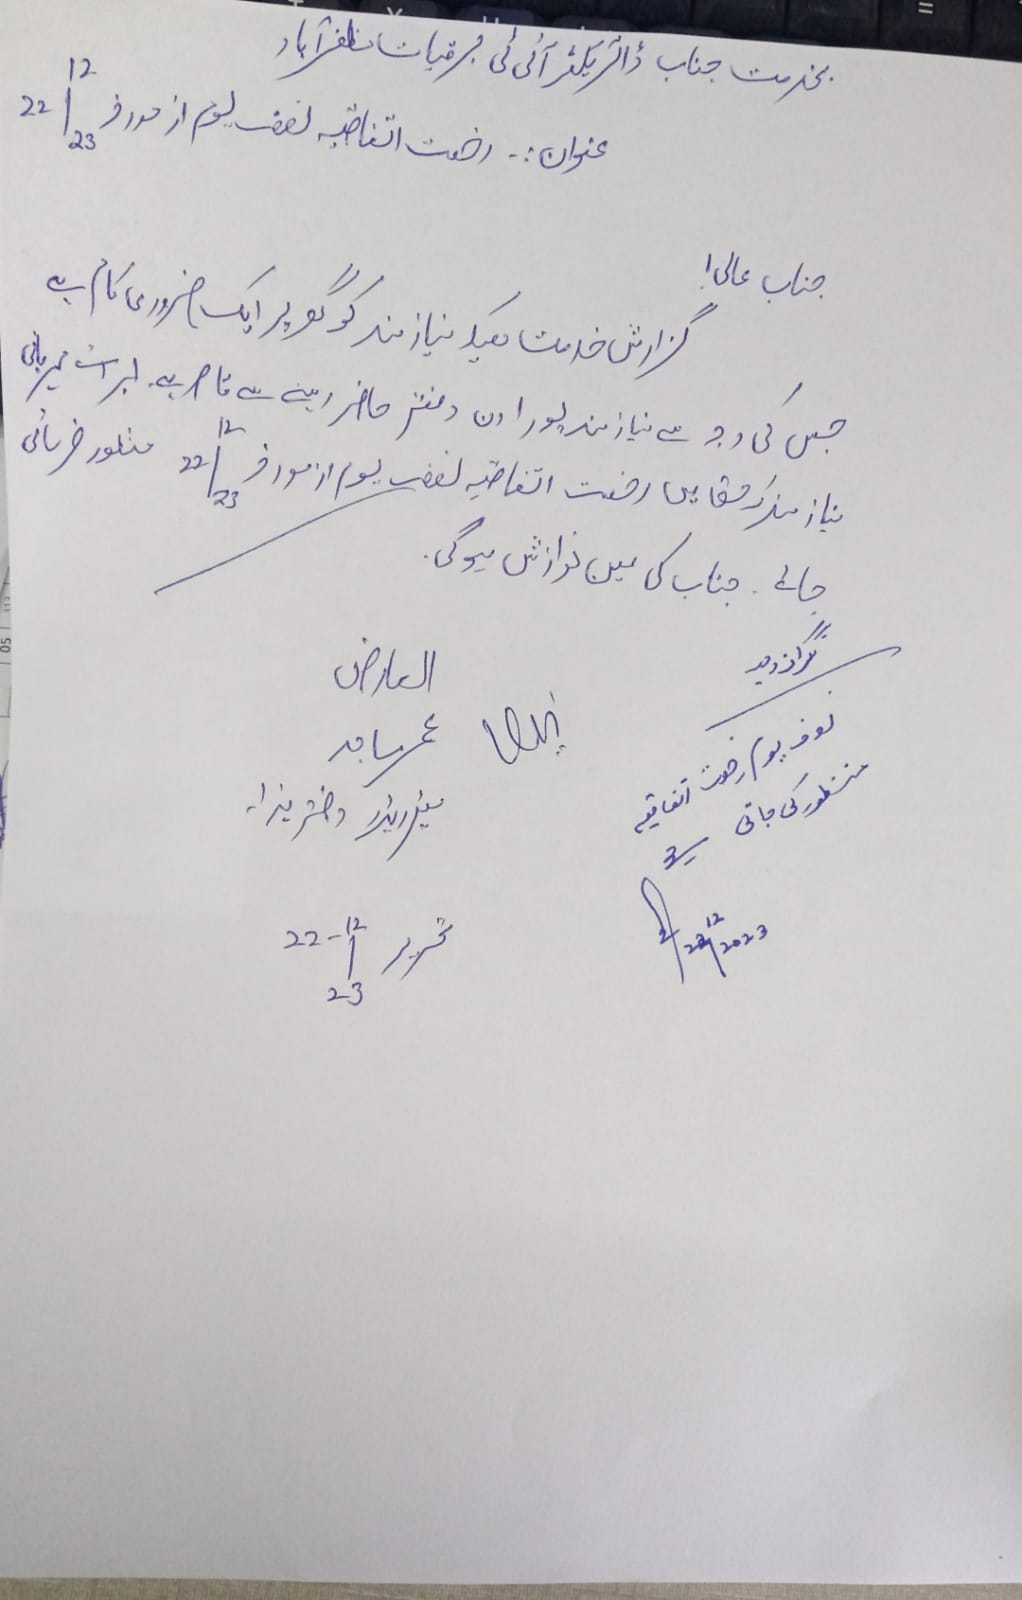 بخدمت جناب ڈائریکٹر آئی ٹی برقیات مظفرآباد
عنوان :۔ رخصت اتفاقیہ نصف یوم از مورخہ 22/12/23
جناب عالی!
گزارش خدمت ہیکہ نیاز مند کو گھر پر ایک ضروری کام ہے
جس کی وجہ سے نیاز مند پورا دن دفتر حاضر رہنے سے قاصر ہے۔ براہ مہربانی
نیاز مند کے حق میں رخصت اتفاقیہ نصف یوم از مورخہ 22/12/23 منظور فرمائی
جائے ۔ جناب کی عین نوازش ہوگی۔
العارض
عمر ساجد
میٹر ریڈر دفتر ہذا۔
تحریر 22-12/23
نصف یوم رخصت اتفاقیہ
منظور کی جاتی
ہے
22/12/2023